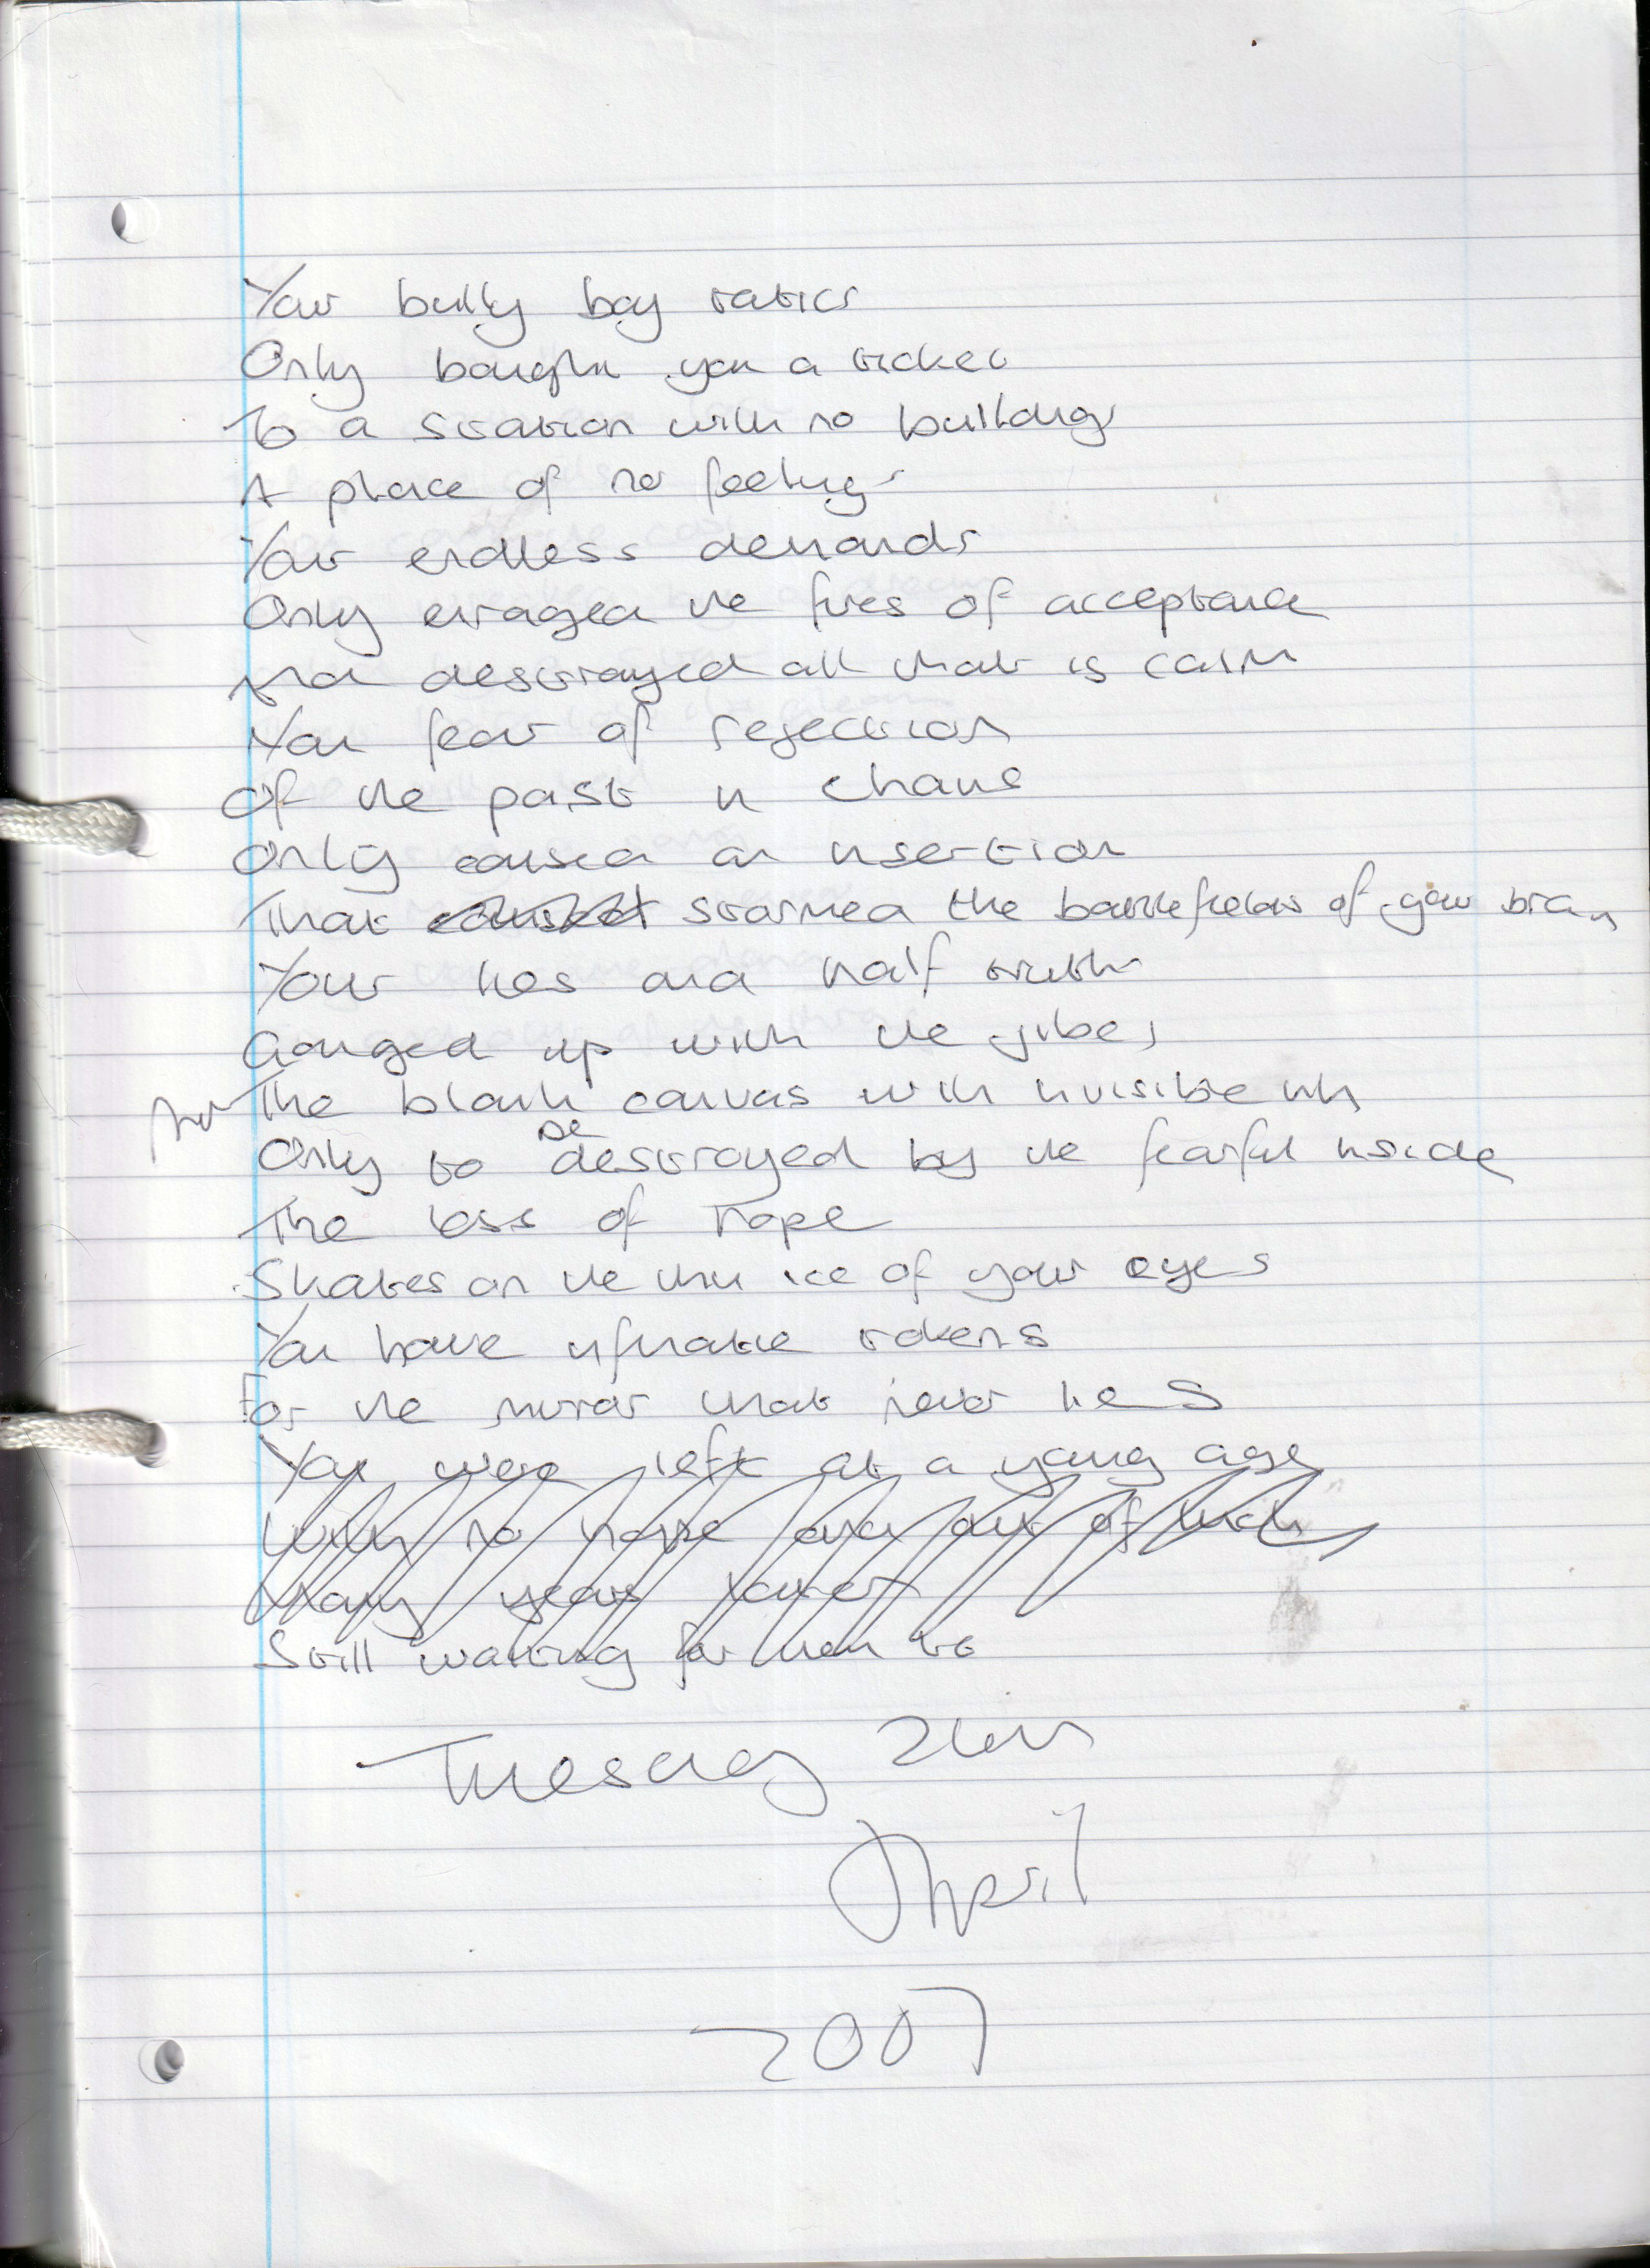 Your bully boy tatics
Only bought you a ticket
To a station with no buildings
A place of no feelings
Your endless demands
Only enraged the fires of acceptance
And destroyed all that is calm
Your fear of rejection
Of the past in chains
Only caused an insertion
That caused stormed the battlefields of your brain
Your lies and half truths
Ganged up with the jibes
The blank canvas with invisible ink
Only to be destroyed by the fearful inside
The loss of hope
Skates on the thin ice of your eyes
You have infinate tokens
For the mirror that never lies
You were left at a young age
With no hope and out of luck
Many years later
Still waiting for them to
Tuesday
April
2007